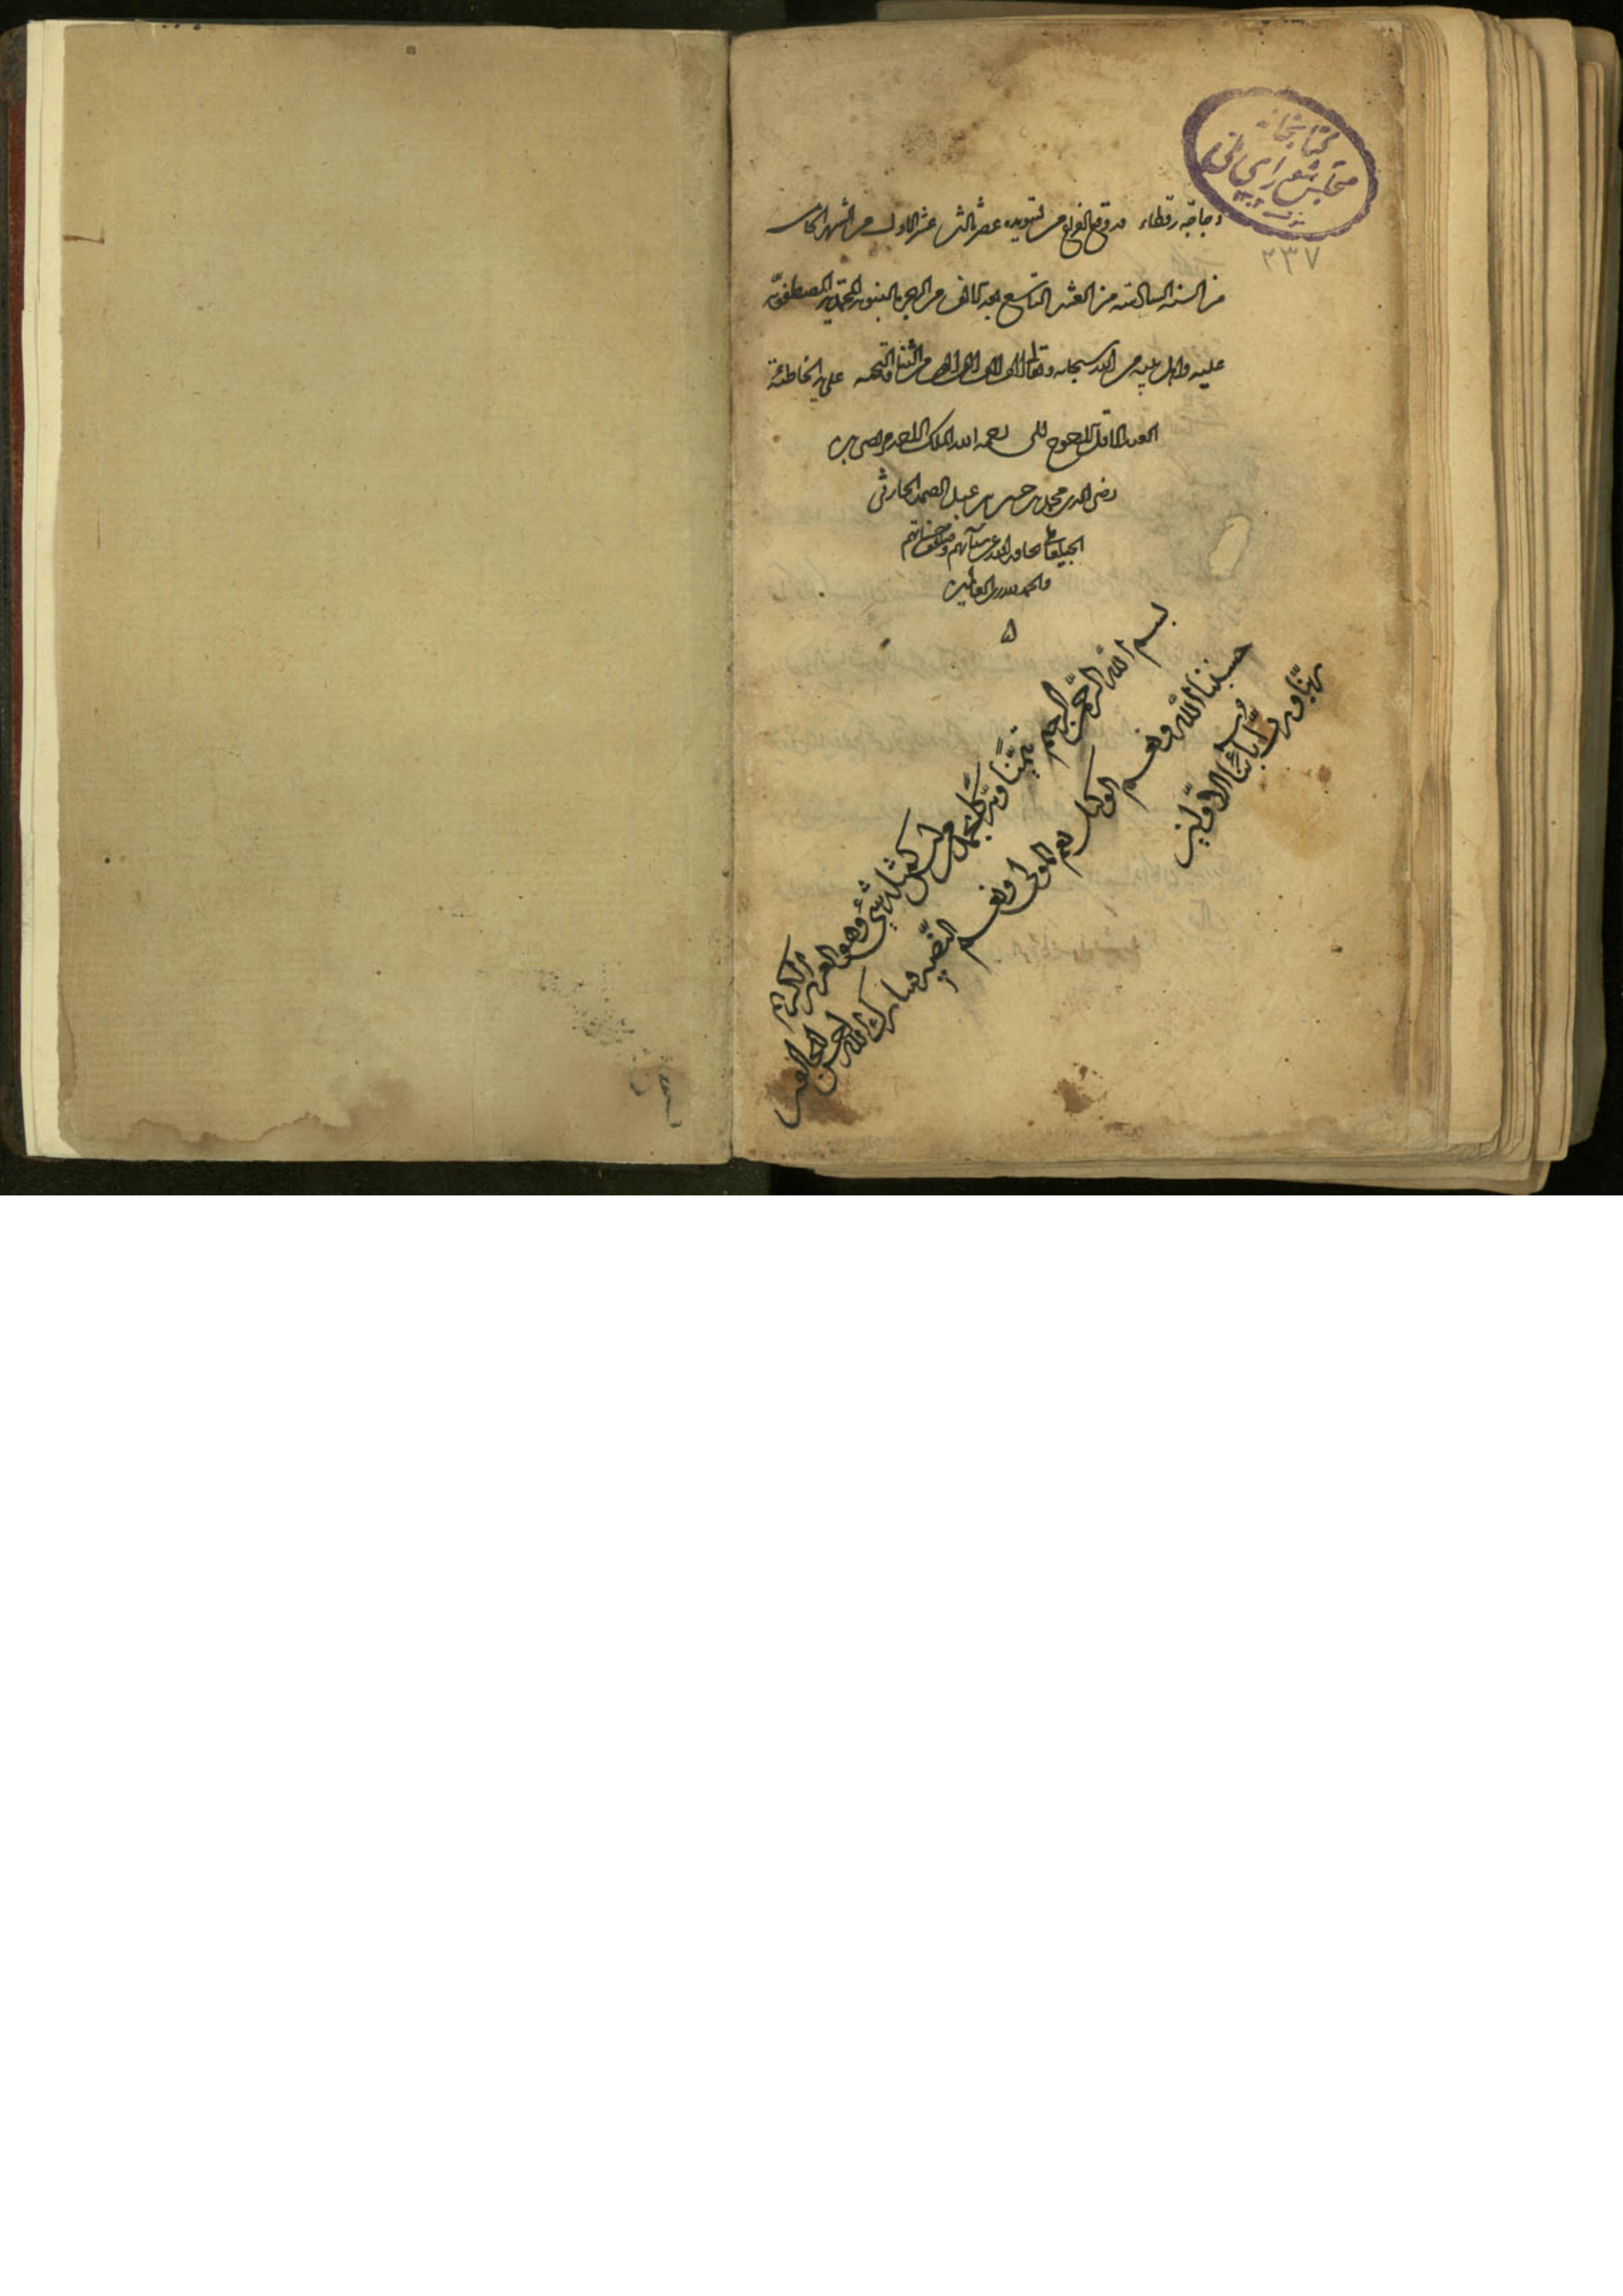 كتابخانه
مجلس شورای ملی
۲۳۷
دجاجة رقطاء قد وقع الفراغ من تسويده عصر ثالث عشر الاول من الشهر
من السنة السادسة من العشر التاسع بعد الالف من الهجرة النبوية المحمدية المصطفوية
عليه واهل بيته من الله سبحانه وتعالى الاف الاف من الثناء والتحية على يد الخاطئة
العبد الاقل رحمة الله الملك
رضى الدين محمد بن حسين بن عبد الصمد الحارثى
الجبلعاملى عن سيآتهم وضاعف حسناتهم
والحمد لله رب العالمين
بسم الله الرحمن الرحيم تيمنا وتبركا ليس كمثله شئ وهو العزيز الكريم
حسبنا الله ونعم الوكيل نعم المولى ونعم النصير تبارك الله احسن الخالقين
ربنا ورب آبائنا الاولين